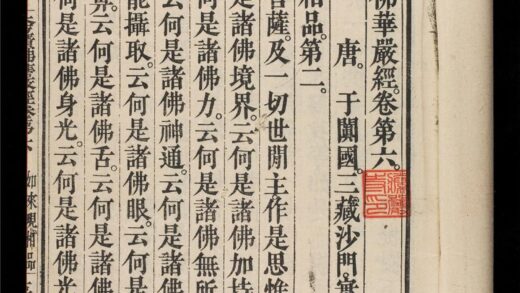 佛華嚴經卷第六。
唐。于闐國。三藏沙門。實
相品。第二。
菩薩。及一切世閒主作是思惟
何是諸佛境界。云何是諸佛加持
。云何是諸佛力。云何是諸佛無所
云何是諸佛神通。云何是諸佛
能攝取。云何是諸佛眼。云何是
鼻。云何是諸佛舌。云何是諸佛
何是諸佛身光。云何是諸佛光
華嚴經卷第六 如來現相品